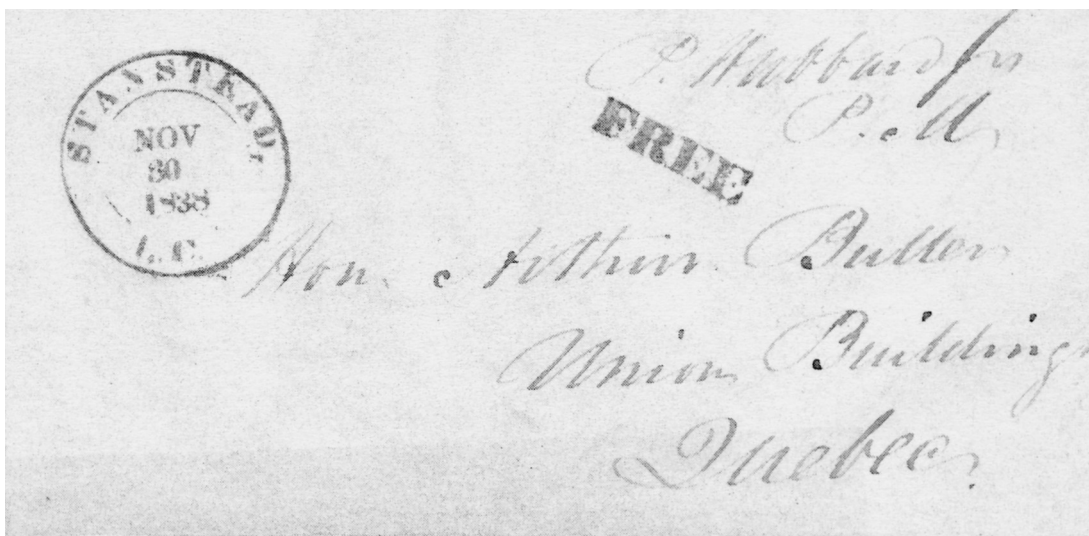 STANSTEAD,
NOV
30
1838
L.C.
P. Hubbard
P. M
FREE
Hon. Arthur Buller
Union Buildings
Quebec